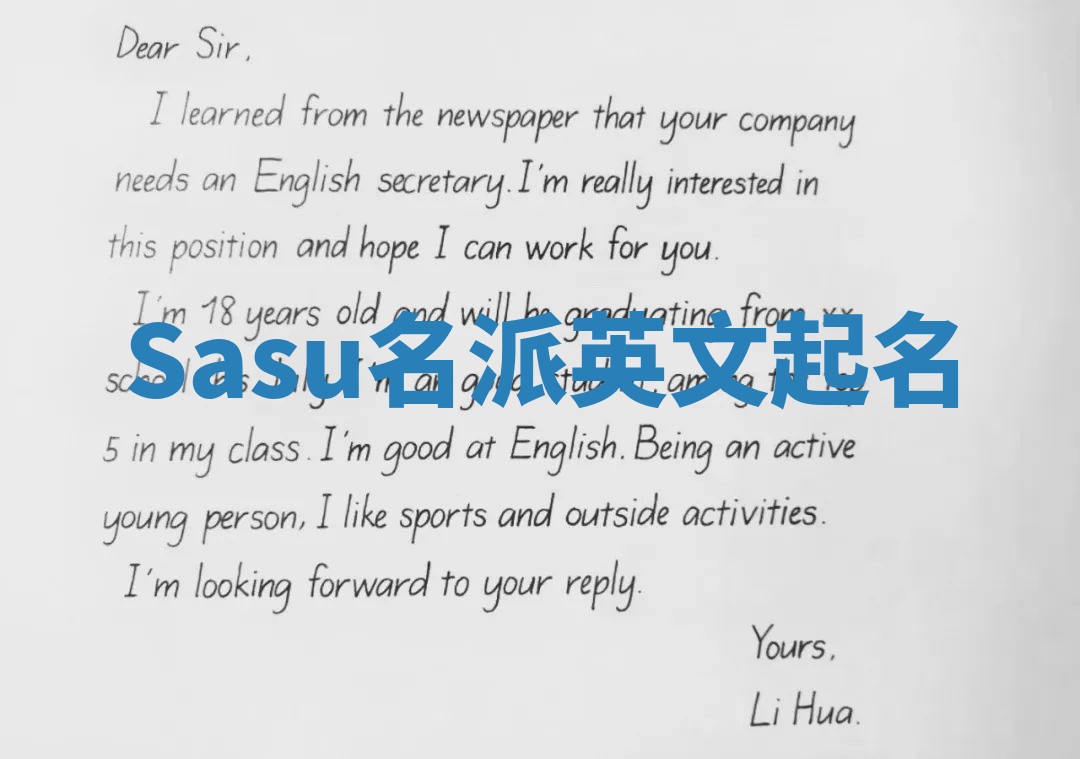 Dear Sir,
I learned from the newspaper that your company
needs an English secretary. I'm really interested in
this position and hope I can work for you.
I'm 18 years old and will be graduating from xx
Sasu名派英文起名
school this July. I'm an good student, among the top
5 in my class. I'm good at English. Being an active
young person, I like sports and outside activities.
I'm looking forward to your reply.
Yours,
Li Hua.